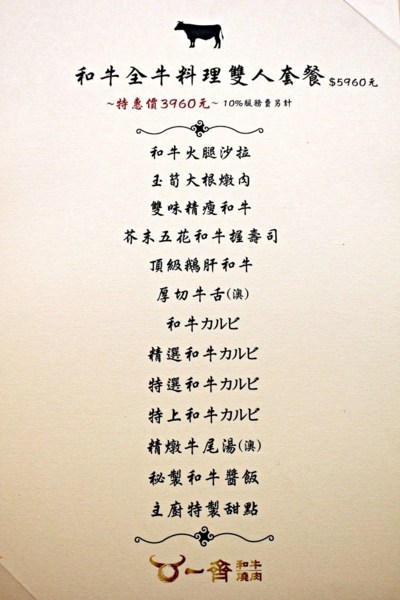 和牛全牛料理雙人套餐 $5960元
~特惠價3960元~ 10%服務費另計
和牛火腿沙拉
玉筍大根燉肉
雙味精瘦和牛
芥末五花和牛握壽司
頂級鵝肝和牛
厚切牛舌(澳)
和牛カルビ
精選和牛カルビ
特選和牛カルビ
特上和牛カルビ
精燉牛尾湯(澳)
秘製和牛醬飯
主廚特製甜點
一齊 和牛燒肉